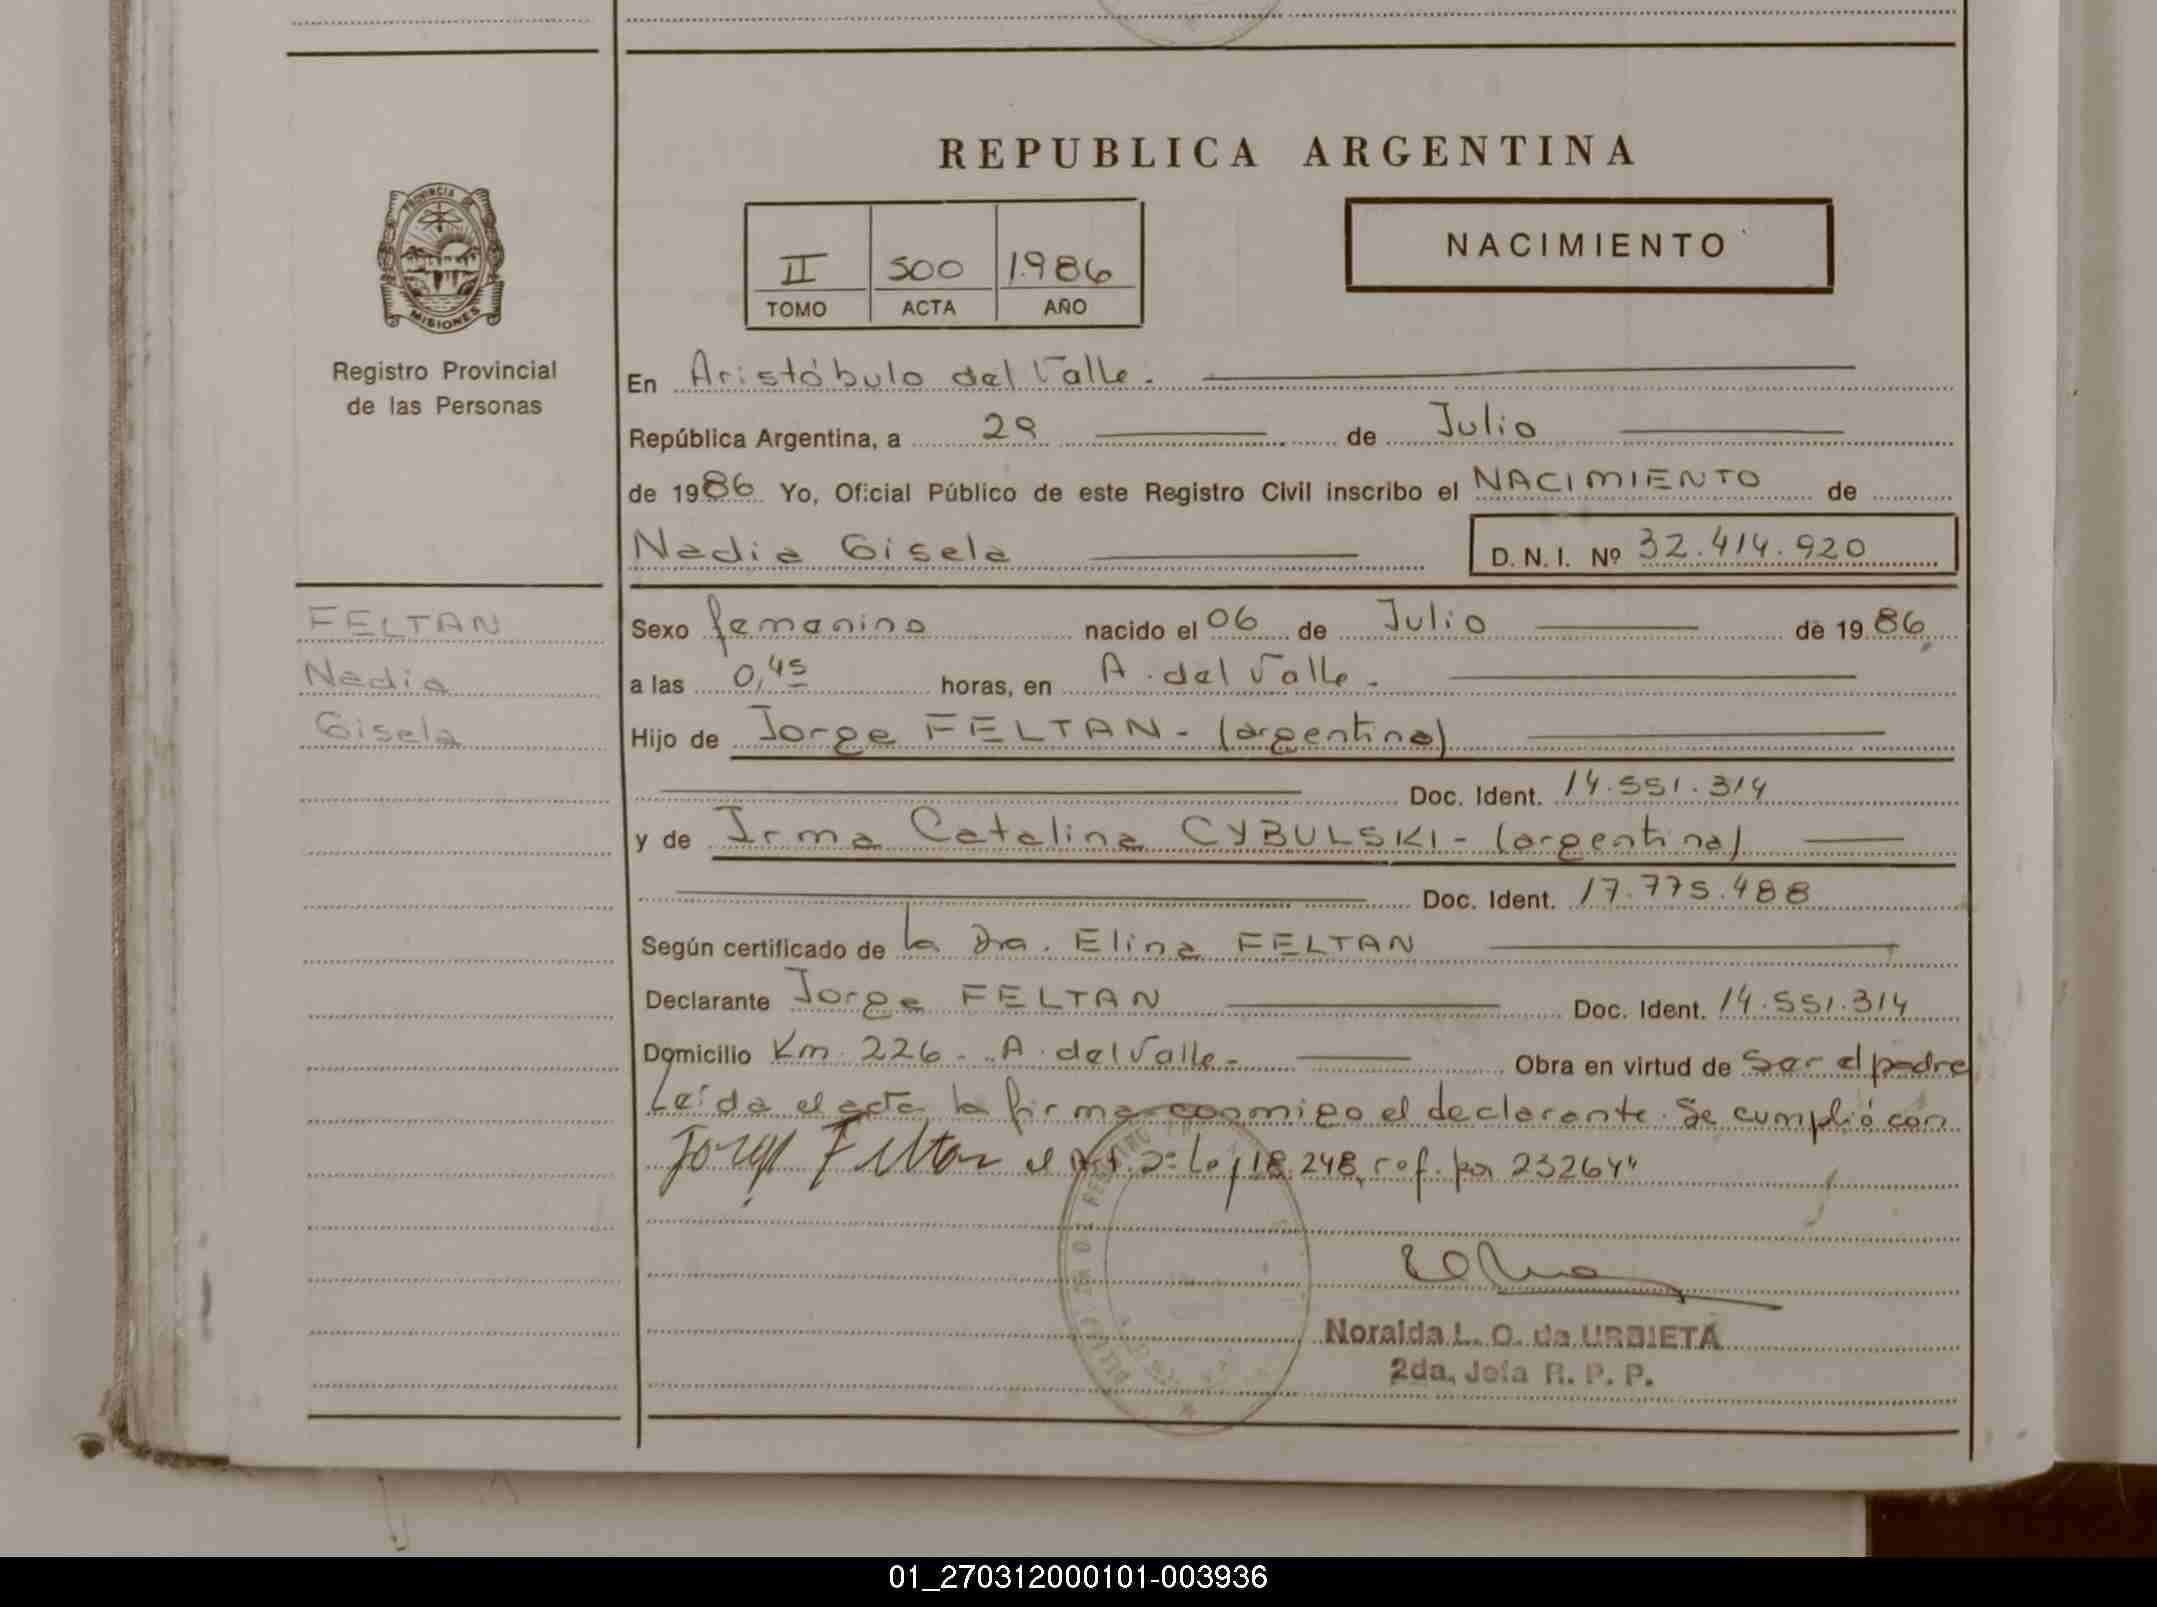 REPUBLICA ARGENTINA
PROVINCIA
MISIONES
Registro Provincial
de las Personas
II 500 1.986
TOMO ACTA AÑO
NACIMIENTO
En Aristóbulo del Valle.
República Argentina, a 29 de Julio
de 1986 Yo, Oficial Público de este Registro Civil inscribo el NACIMIENTO de
Nadia Gisela D. N. I. Nº 32.414.920
FELTAN
Nadia
Gisela
Sexo femenino nacido el 06 de Julio de 1986
a las 0,45 horas, en A. del Valle.
Hijo de Jorge FELTAN - (argentino)
Doc. Ident. 14.551.314
y de Irma Catalina CYBULSKI - (argentina)
Doc. Ident. 17.775.488
Según certificado de la Dra. Elina FELTAN
Declarante Jorge FELTAN Doc. Ident. 14.551.314
Domicilio Km. 226 - A. del Valle - Obra en virtud de ser el padre
Leída el acta la firma conmigo el declarante. Se cumplió con
Jorge Feltan el Art. 2º Ley 18.248, ref. por 23264"
Noralda L. O. de URBIETA
2da. Jefa R. P. P.
01_270312000101-003936